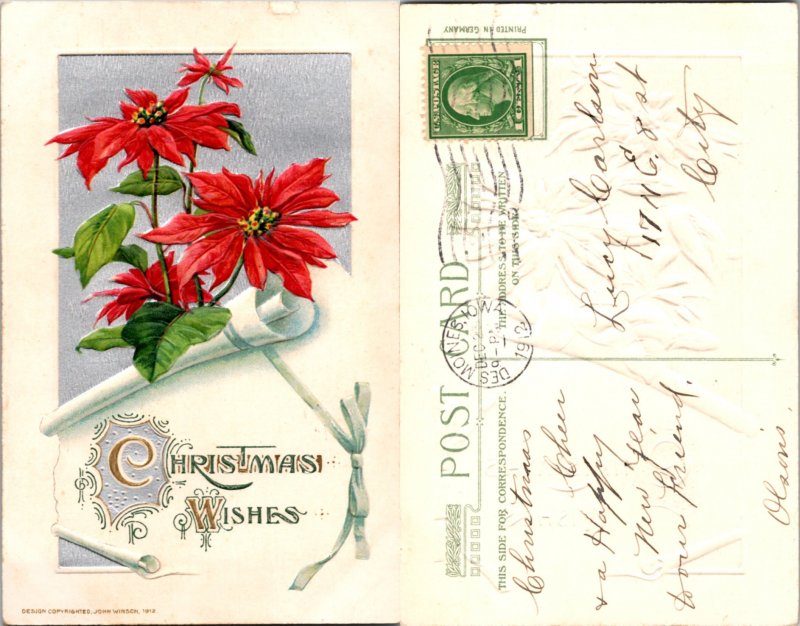 CHRISTMAS
WISHES
DESIGN COPYRIGHTED, JOHN WINSCH, 1912.
PRINTED IN GERMANY
POST CARD
THIS SIDE FOR CORRESPONDENCE.
THE ADDRESS TO BE WRITTEN
ON THIS SIDE
U.S. POSTAGE
DES MOINES, IOWA
DEC
9 - P
1912
Christmas Cheer
& a Happy
New Year
Your Friend.
Olsons.
Lucy Carlson
17 N E. 8 st
City